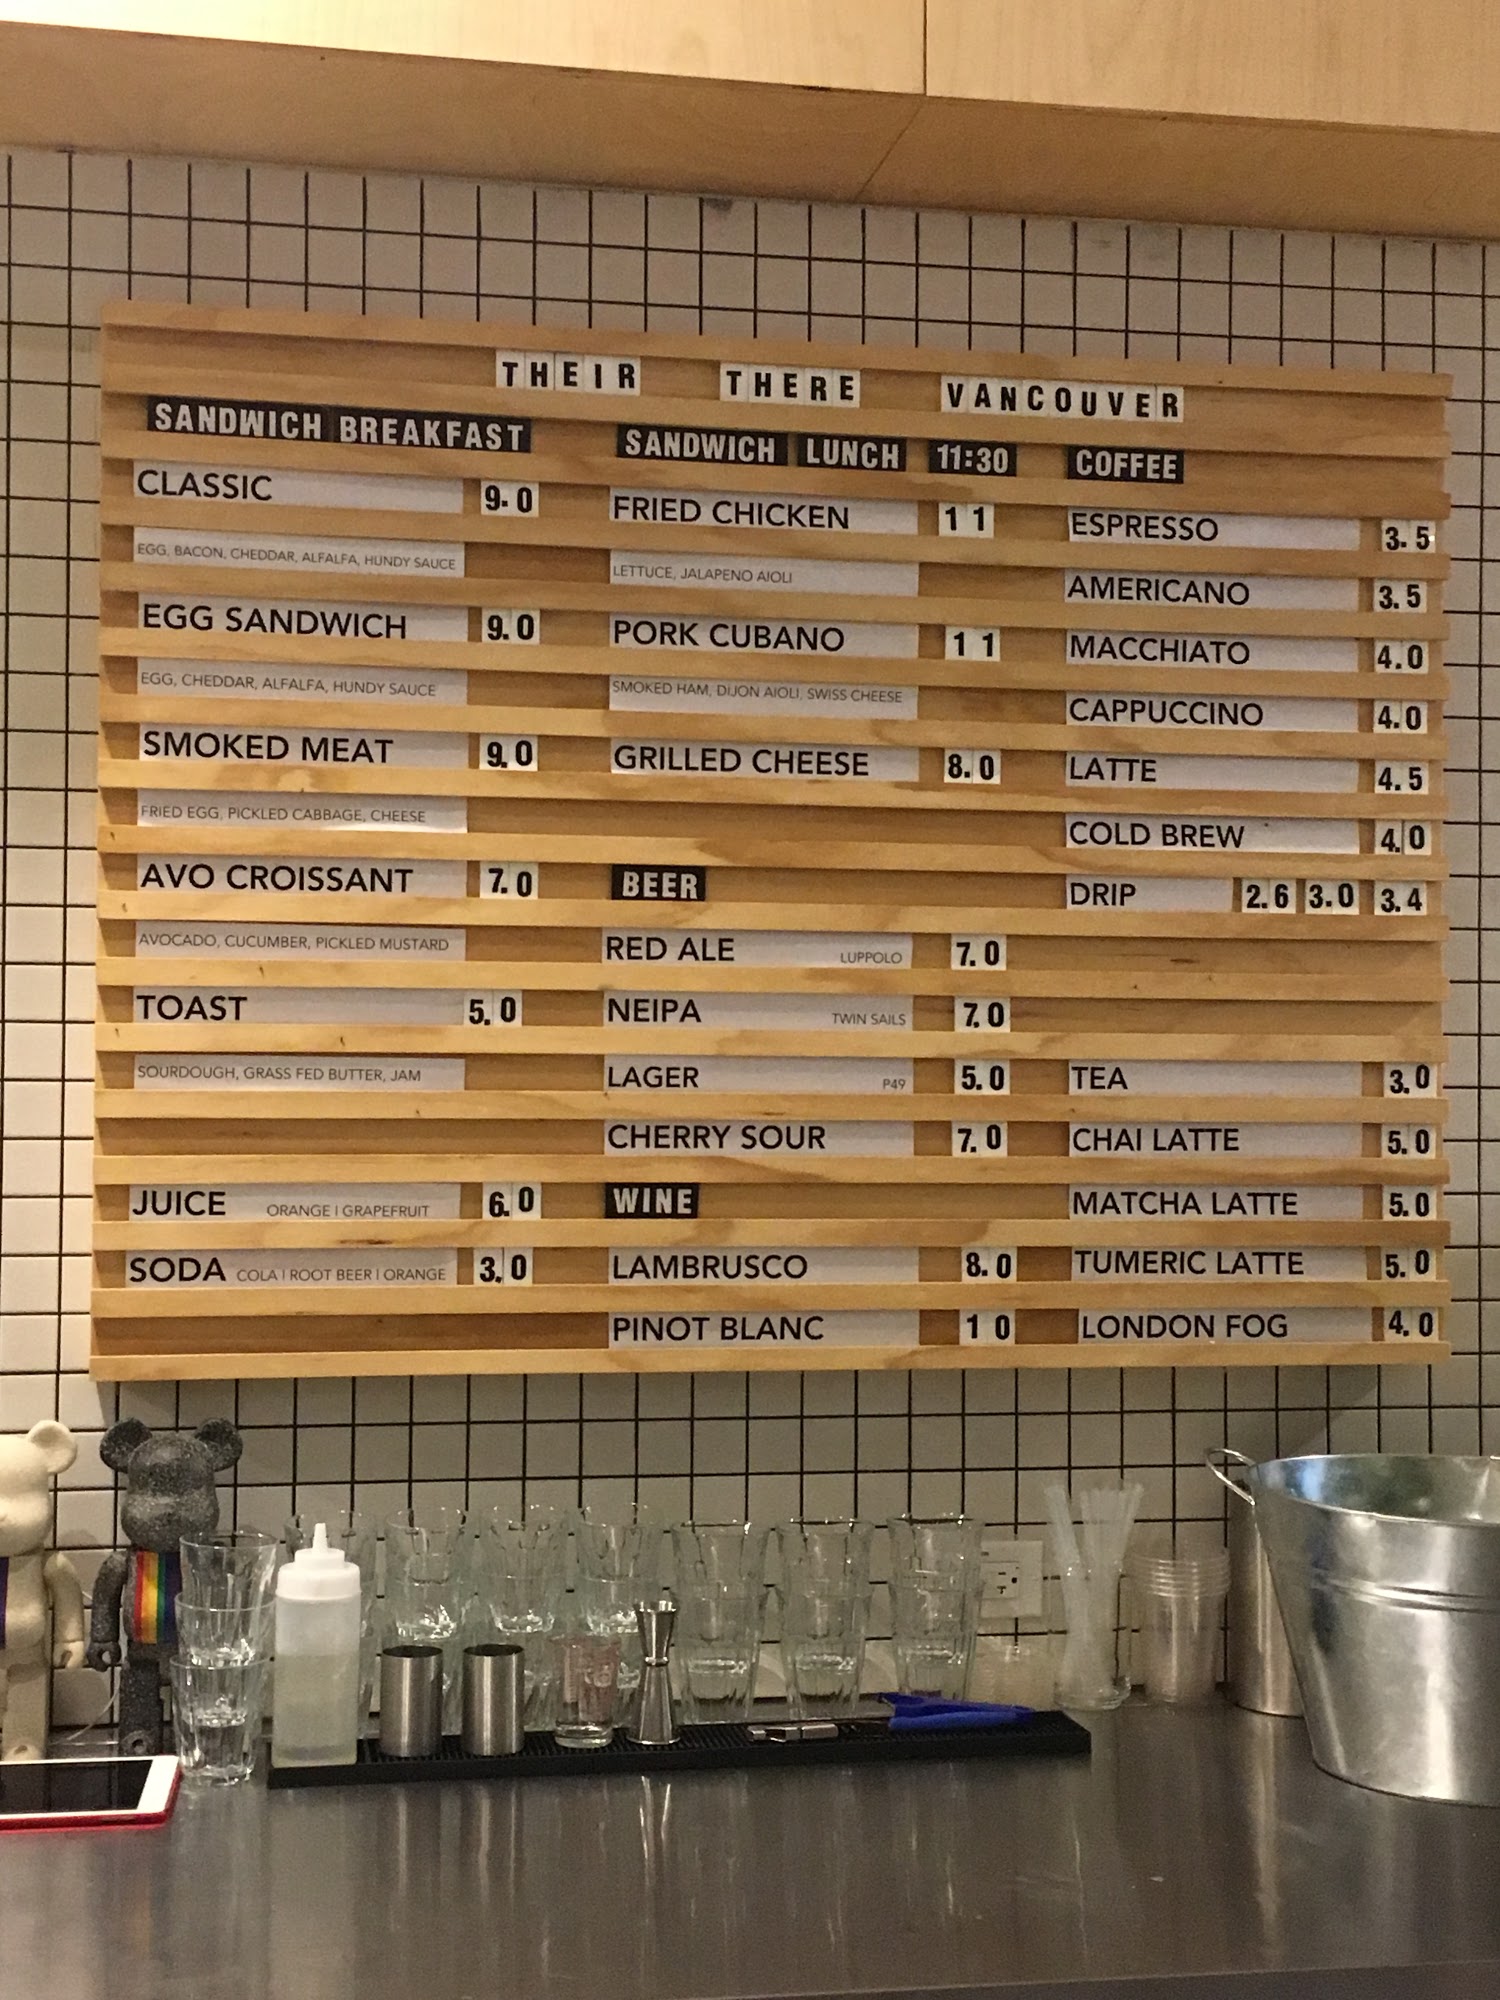 THEIR THERE VANCOUVER
SANDWICH BREAKFAST
CLASSIC 9.0
EGG, BACON, CHEDDAR, ALFALFA, HUNDY SAUCE
EGG SANDWICH 9.0
EGG, CHEDDAR, ALFALFA, HUNDY SAUCE
SMOKED MEAT 9.0
FRIED EGG, PICKLED CABBAGE, CHEESE
AVO CROISSANT 7.0
AVOCADO, CUCUMBER, PICKLED MUSTARD
TOAST 5.0
SOURDOUGH, GRASS FED BUTTER, JAM
JUICE ORANGE | GRAPEFRUIT 6.0
SODA COLA | ROOT BEER | ORANGE 3.0
SANDWICH LUNCH 11:30
FRIED CHICKEN 11
LETTUCE, JALAPENO AIOLI
PORK CUBANO 11
SMOKED HAM, DIJON AIOLI, SWISS CHEESE
GRILLED CHEESE 8.0
BEER
RED ALE LUPPOLO 7.0
NEIPA TWIN SAILS 7.0
LAGER P49 5.0
CHERRY SOUR 7.0
WINE
LAMBRUSCO 8.0
PINOT BLANC 10
COFFEE
ESPRESSO 3.5
AMERICANO 3.5
MACCHIATO 4.0
CAPPUCCINO 4.0
LATTE 4.5
COLD BREW 4.0
DRIP 2.6 3.0 3.4
TEA 3.0
CHAI LATTE 5.0
MATCHA LATTE 5.0
TUMERIC LATTE 5.0
LONDON FOG 4.0